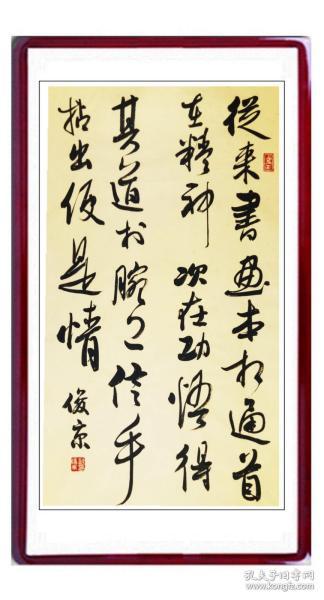 從来書画本相通首
在精神次在功悟得
其道於腕上信手
拈出便是情
俊京
孔夫子旧书网